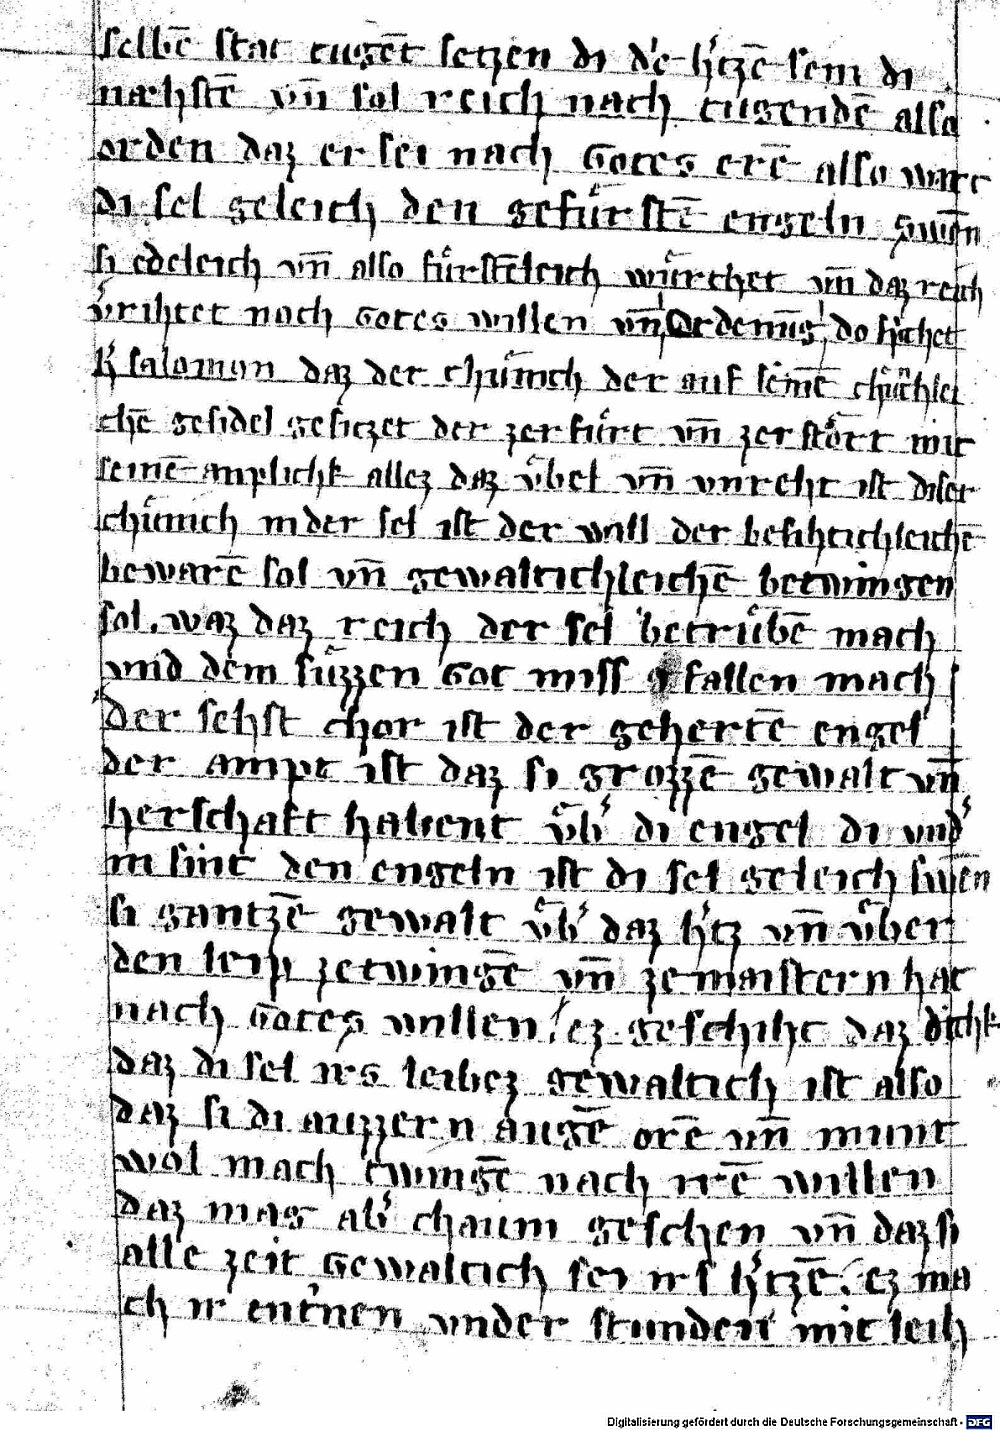 selbē stat tugēt setzen di d'e h'tzē sem di
næhstē vn̄ sol reich nach tugendē also
orden daz er sei nach Gotes erē also wirt
di sel geleich den gefuͤrstē engeln swēn
si edeleich vn̄ also fuͤrstēleich wuͤrchet vn̄ daz reich
v'rihtet nach Gotes willen vn̄ Ordenūg do sp'chet
k' salomon daz der chuͤnich der auf seinē chuͤnchlei
chē gesidel gesitzet der zerfuͤrt vn̄ zerstoͤrt mit
seinē anplichk allez daz vͤbel vn̄ vnreht ist diser
chuͤnich in der sel ist der will der besihtichleichē
bewarē sol vn̄ gewaltichleichē betwingen
sol. waz daz reich der sel betruͤbē mach
vnd dem suͤzzen Got miss gfallen mach
Der sehst chor ist der gehertē engel
der ampt ist daz si grozzē gewalt vn̄
herschaft habent vͤb' di engel di vnd'
in sint den engeln ist di sel geleich swēn
si gantzē gewalt vͤb' daz h'tz vn̄ vͤber
den leip zetwingē vn̄ zemaistern hat
nach Gotes willen / ez geschiht daz dichk
daz di sel irs leibez gewaltich ist also
daz si di auzzern augē orē vn̄ munt
wol mach twingē nach irē willen
daz mag ab' chaum geschen vn̄ daz si
alle zeit gewaltich sei irs h'tzē. ez ma
ch ir ent'nen vnder stunden mit leih
Digitalisierung gefördert durch die Deutsche Forschungsgemeinschaft - DFG